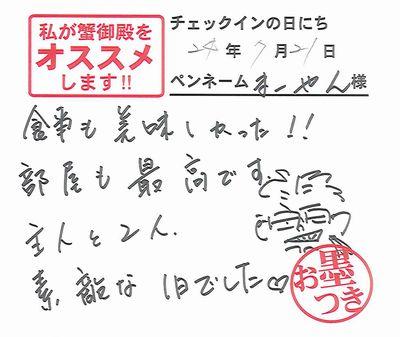 私が蟹御殿を
オススメ
します!!
チェックインの日にち
24年7月21日
ペンネーム まーやん様
食事も美味しかった!!
部屋も最高です
主人と2人、
素敵な1日でした♡
お墨つき